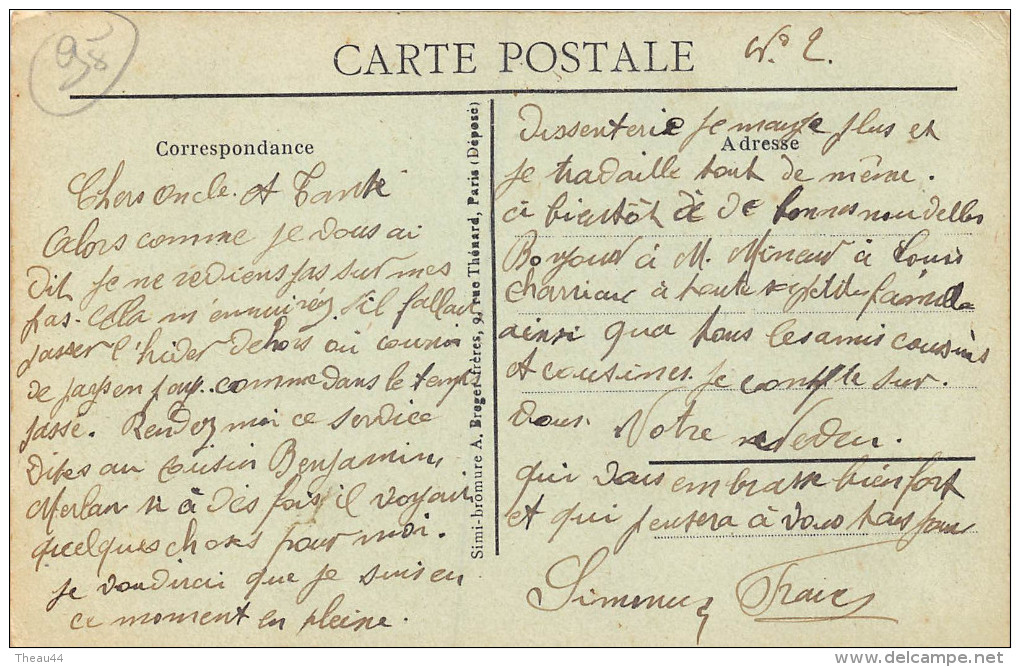 958
CARTE POSTALE
N° 2.
Correspondance
Chers Oncle. et Tante
Alors comme je vous ai
dit je ne reviens pas sur mes
pas. Cela m'ennuirez s'il fallait
passer l'hiver dehors où courir
de pays en pays. comme dans le temps
passé. Rendez moi ce service
dites au cousin Benjamin
Merlan si à des fois il voyait
quelques choses pour moi.
je voudirai que je suis en
ce moment en pleine.
Simi-bromure A. Breger frères, 9, rue Thénard, Paris (Déposé)
Adresse
dissenterie je mange plus et
je travaille tout de même.
à bientôt de bonnes nouvelles
Bonjour à M. Mineur à Louis
Charriau à toute sa petite famille
ainsi qua tous les amis cousins
et cousines je compte sur
vous. Votre neveu.
qui vous embrasse bien fort
et qui pensera à vous toujours
Theau44
www.delcampe.net